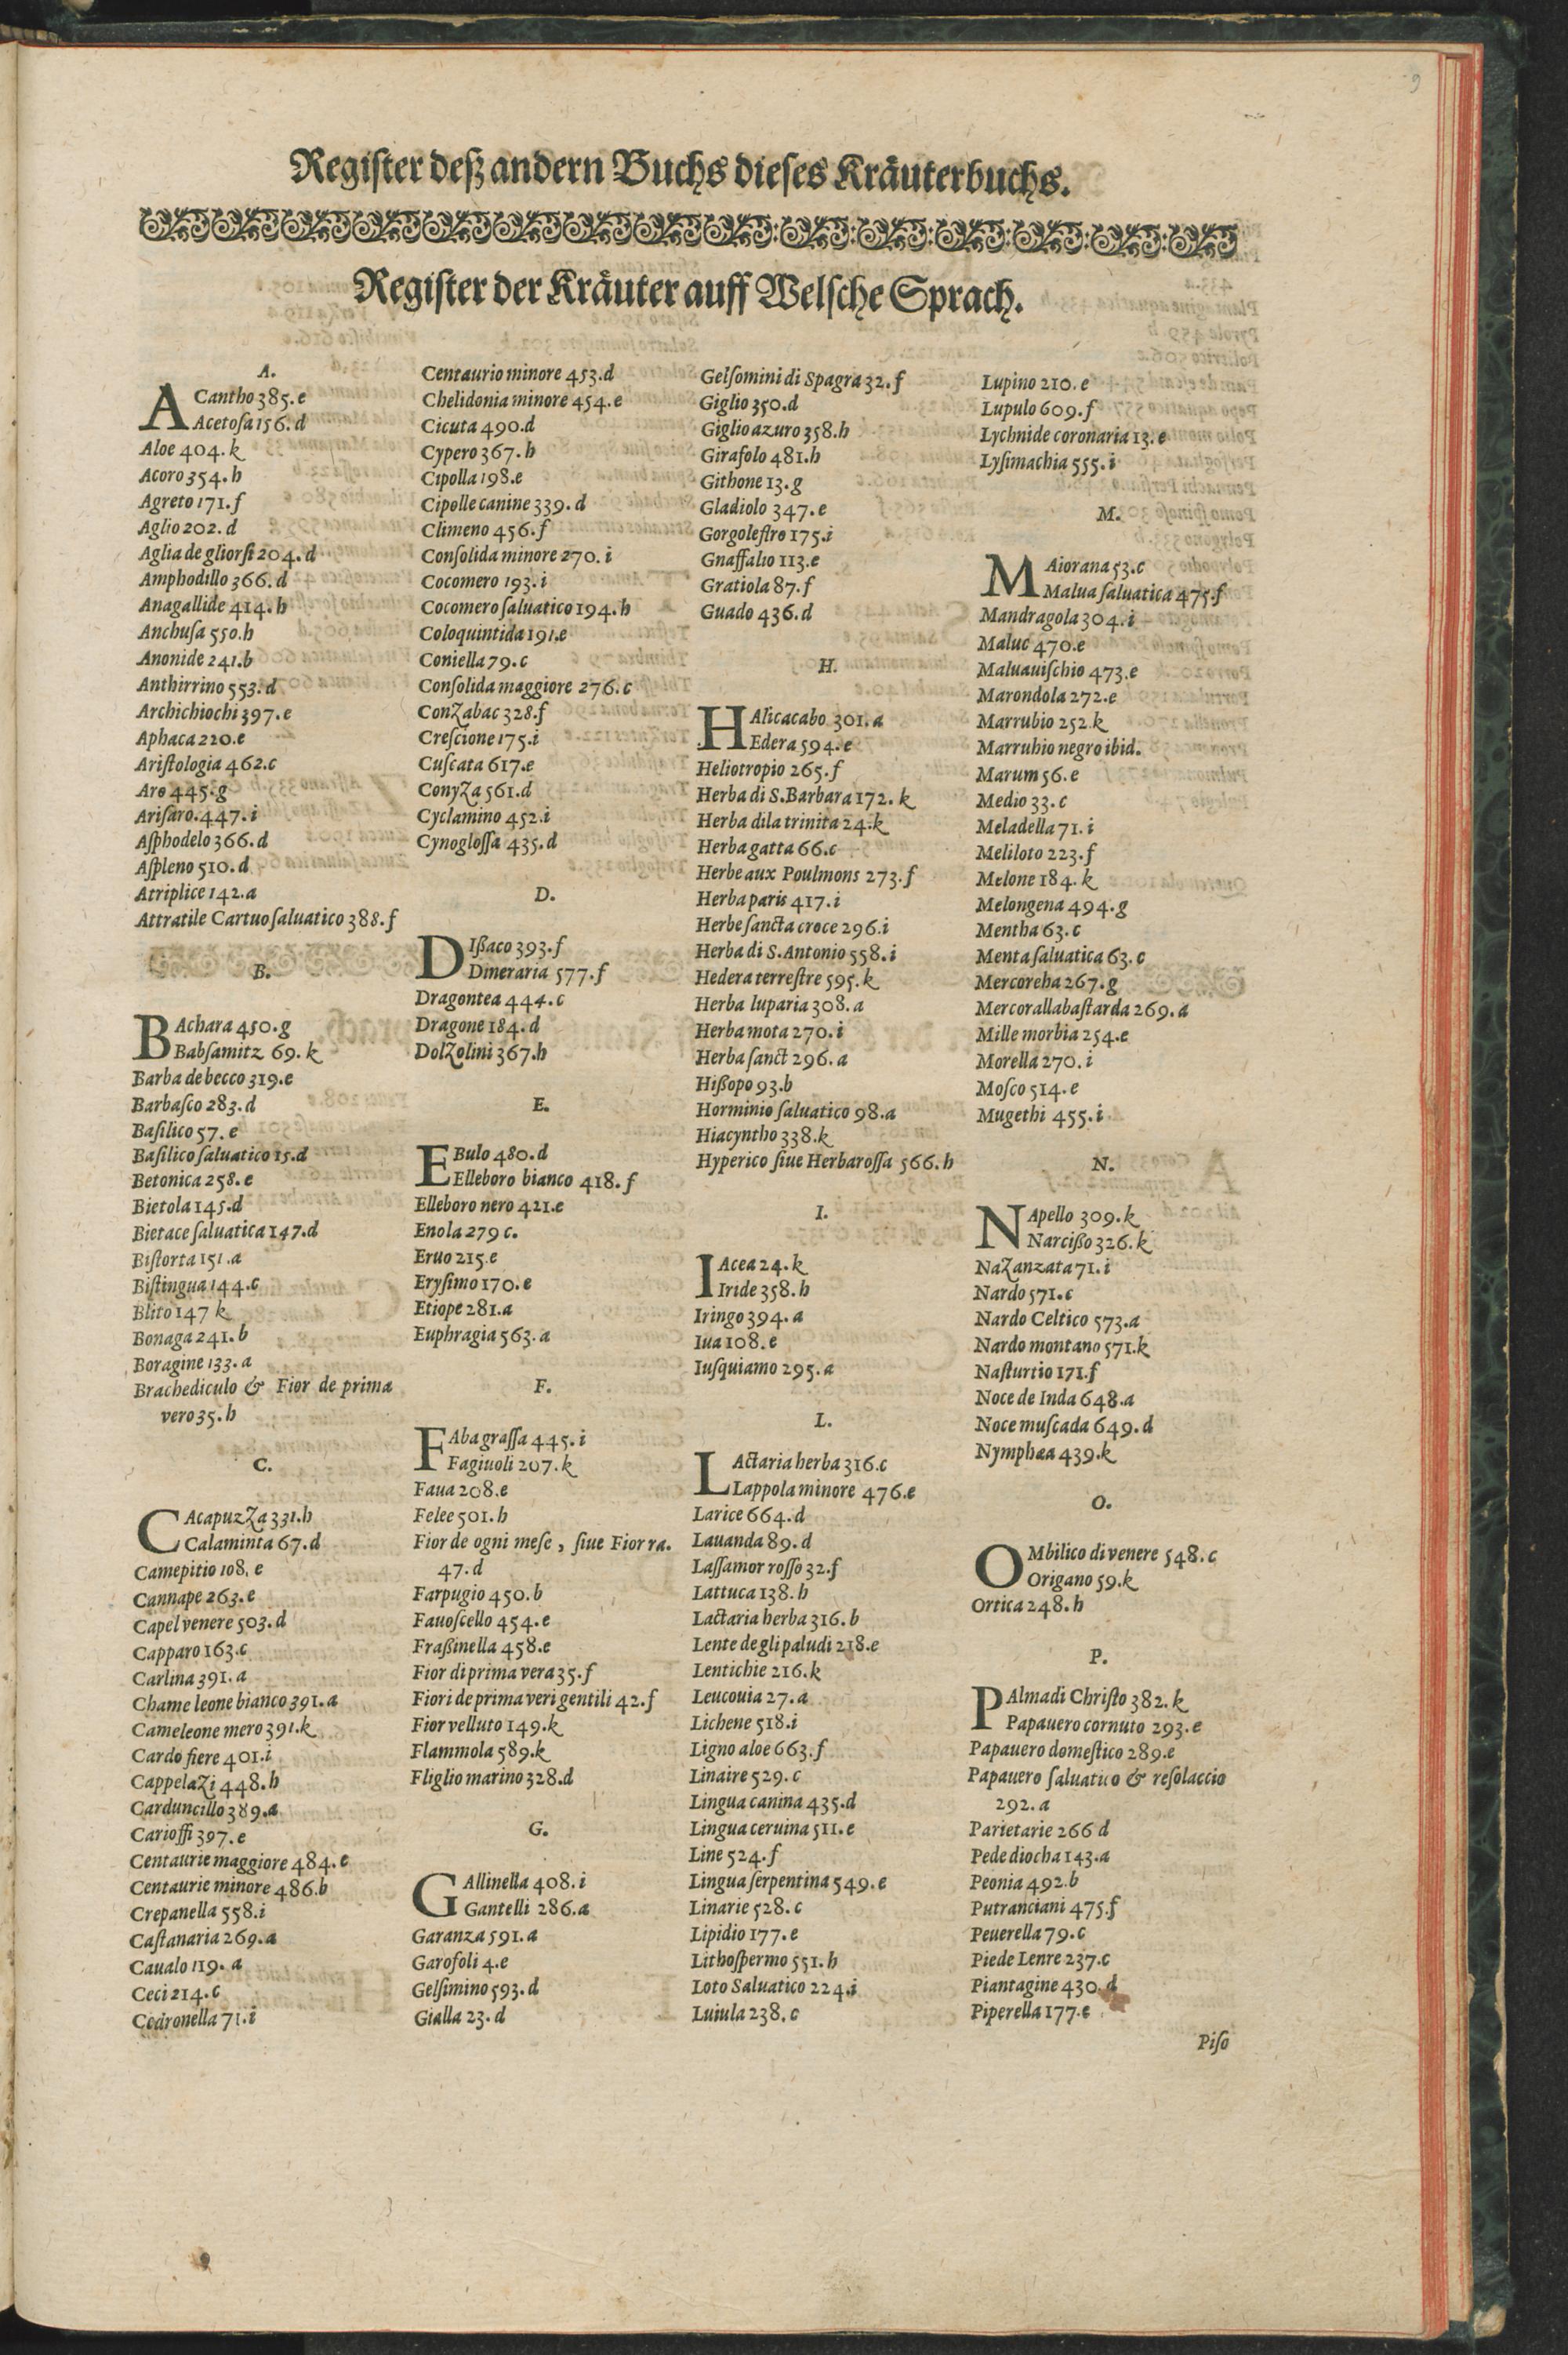 Regiſter deß andern Buchs dieſes Kräuterbuchs.
Regiſter der Kräuter auff Welſche Sprach.
A.
ACantho 385.e
Acetoſa 156.d
Aloe 404.k
Acoro 354.h
Agreto 171.f
Aglio 202.d
Aglia de gliorſi 204.d
Amphodillo 366.d
Anagallide 414.h
Anchuſa 550.h
Anonide 241.b
Anthirrino 553.d
Archichiochi 397.e
Aphaca 220.e
Ariſtologia 462.c
Aro 445.g
Ariſaro.447.i
Aſphodelo 366.d
Aſpleno 510.d
Atriplice 142.a
Attratile Cartuo ſaluatico 388.f
B.
BAchara 450.g
Babſamitz 69.k
Barba de becco 319.e
Barbaſco 283.d
Baſilico 57.e
Baſilico ſaluatico 15.d
Betonica 258.e
Bietola 145.d
Bietace ſaluatica 147.d
Biſtorta 151.a
Biſlingua 144.c
Blito 147 k
Bonaga 241.b
Boragine 133.a
Brachediculo & Fior de prima
vero 35.h
C.
CAcapuzza 331.h
Calaminta 67.d
Camepitio 108.e
Cannape 263.e
Capel venere 503.d
Capparo 163.c
Carlina 391.a
Chame leone bianco 391.a
Cameleone mero 391.k
Cardo fiere 401.i
Cappelazi 448.h
Carduncillo 389.a
Carioffi 397.e
Centaurie maggiore 484.e
Centaurie minore 486.b
Crepanella 558.i
Caſtanaria 269.a
Caualo 119.a
Ceci 214.c
Cedronella 71.i
Centaurio minore 453.d
Chelidonia minore 454.e
Cicuta 490.d
Cypero 367.h
Cipolla 198.e
Cipolle canine 339.d
Climeno 456.f
Conſolida minore 270.i
Cocomero 193.i
Cocomero ſaluatico 194.h
Coloquintida 191.e
Coniella 79.c
Conſolida maggiore 276.c
Conzabac 328.f
Creſcione 175.i
Cuſcata 617.e
Conyza 561.d
Cyclamino 452.i
Cynogloſſa 435.d
D.
DIßaco 393.f
Dineraria 577.f
Dragontea 444.c
Dragone 184.d
Dolzolini 367.h
E.
EBulo 480.d
Elleboro bianco 418.f
Elleboro nero 421.e
Enola 279 c.
Eruo 215.e
Eryſimo 170.e
Etiope 281.a
Euphragia 563.a
F.
FAba graſſa 445.i
Fagiuoli 207.k
Faua 208.e
Felee 501.h
Fior de ogni meſe, ſiue Fior ra.
47.d
Farpugio 450.b
Fauoſcello 454.e
Fraßinella 458.e
Fior di prima vera 35.f
Fiori de prima veri gentili 42.f
Fior velluto 149.k
Flammola 589.k
Fliglio marino 328.d
G.
GAllinella 408.i
Gantelli 286.a
Garanza 591.a
Garofoli 4.e
Gelſimino 593.d
Gialla 23.d
Gelſomini di Spagra 32.f
Giglio 350.d
Giglio azuro 358.h
Girafolo 481.h
Githone 13.g
Gladiolo 347.e
Gorgoleſtro 175.i
Gnaffalio 113.e
Gratiola 87.f
Guado 436.d
H.
HAlicacabo 301.a
Edera 594.e
Heliotropio 265.f
Herba di S.Barbara 172.k
Herba dila trinita 24.k
Herba gatta 66.c
Herbe aux Poulmons 273.f
Herba paris 417.i
Herbe ſancta croce 296.i
Herba di S.Antonio 558.i
Hedera terreſtre 595.k
Herba luparia 308.a
Herba mota 270.i
Herba ſanct 296.a
Hißopo 93.b
Horminio ſaluatico 98.a
Hiacyntho 338.k
Hyperico ſiue Herbaroſſa 566.h
I.
IAcea 24.k
Iride 358.h
Iringo 394.a
Iua 108.e
Iuſquiamo 295.a
L.
LActaria herba 316.c
Lappola minore 476.e
Larice 664.d
Lauanda 89.d
Laſſamor roſſo 32.f
Lattuca 138.h
Lactaria herba 316.b
Lente degli paludi 218.e
Lentichie 216.k
Leucouia 27.a
Lichene 518.i
Ligno aloe 663.f
Linaire 529.c
Lingua canina 435.d
Lingua ceruina 511.e
Line 524.f
Lingua ſerpentina 549.e
Linarie 528.c
Lipidio 177.e
Lithoſpermo 551.h
Loto Saluatico 224.i
Luiula 238.c
Lupino 210.e
Lupulo 609.f
Lychnide coronaria 13.e
Lyſimachia 555.i
M.
MAiorana 53.c
Malua ſaluatica 475.f
Mandragola 304.i
Maluc 470.e
Maluauiſchio 473.e
Marondola 272.e
Marrubio 252.k
Marrubio negro ibid.
Marum 56.e
Medio 33.c
Meladella 71.i
Meliloto 223.f
Melone 184.k
Melongena 494.g
Mentha 63.c
Menta ſaluatica 63.c
Mercoreha 267.g
Mercorallabaſtarda 269.a
Mille morbia 254.e
Morella 270.i
Moſco 514.e
Mugethi 455.i
N.
NApello 309.k
Narcißo 326.k
Nazanzata 71.i
Nardo 571.c
Nardo Celtico 573.a
Nardo montano 571.k
Naſturtio 171.f
Noce de Inda 648.a
Noce muſcada 649.d
Nymphæa 439.k
O.
OMbilico di venere 548.c
Origano 59.k
Ortica 248.h
P.
PAlmadi Chriſto 382.k
Papauero cornuto 293.e
Papauero domeſtico 289.e
Papauero ſaluatico & reſolaccio
292.a
Parietarie 266 d
Pede diocha 143.a
Peonia 492.b
Putranciani 475.f
Peuerella 79.c
Piede Lenre 237.c
Piantagine 430.d
Piperella 177.e
Piſo